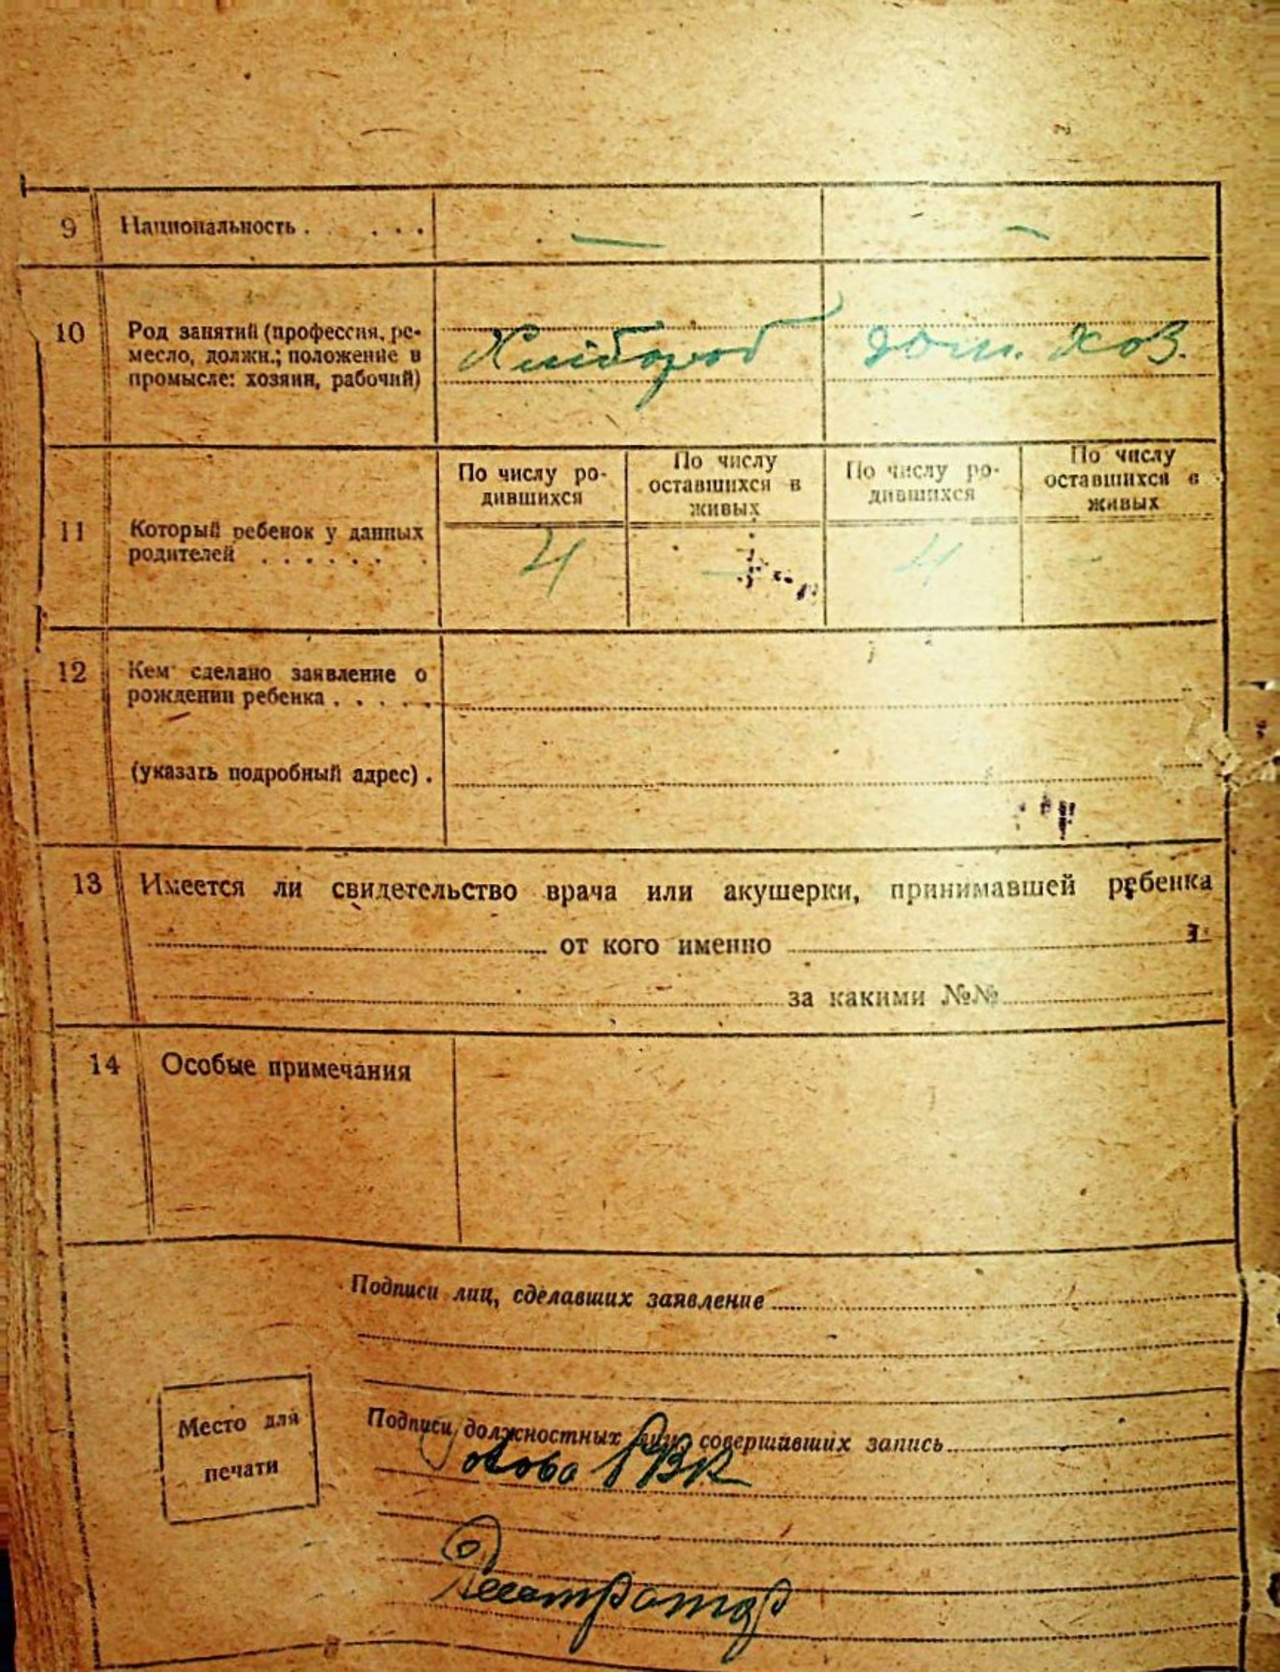 9 Национальность . . . . . — —
10 Род занятий (профессия, ре-
месло, должн.; положение в
промысле: хозяин, рабочий)
Хлібороб дом. хоз.
По числу ро-
дившихся
По числу
оставшихся в
живых
По числу ро-
дившихся
По числу
оставшихся в
живых
11 Который ребенок у данных
родителей . . . . . . .
4 — 4 —
12 Кем сделано заявление о
рождении ребенка . . . . .
(указать подробный адрес) .
13 Имеется ли свидетельство врача или акушерки, принимавшей ребенка
от кого именно
за какими №№
14 Особые примечания
Подписи лиц, сделавших заявление
Место для
печати
Подписи должностных лиц, совершивших запись
Голова РВК